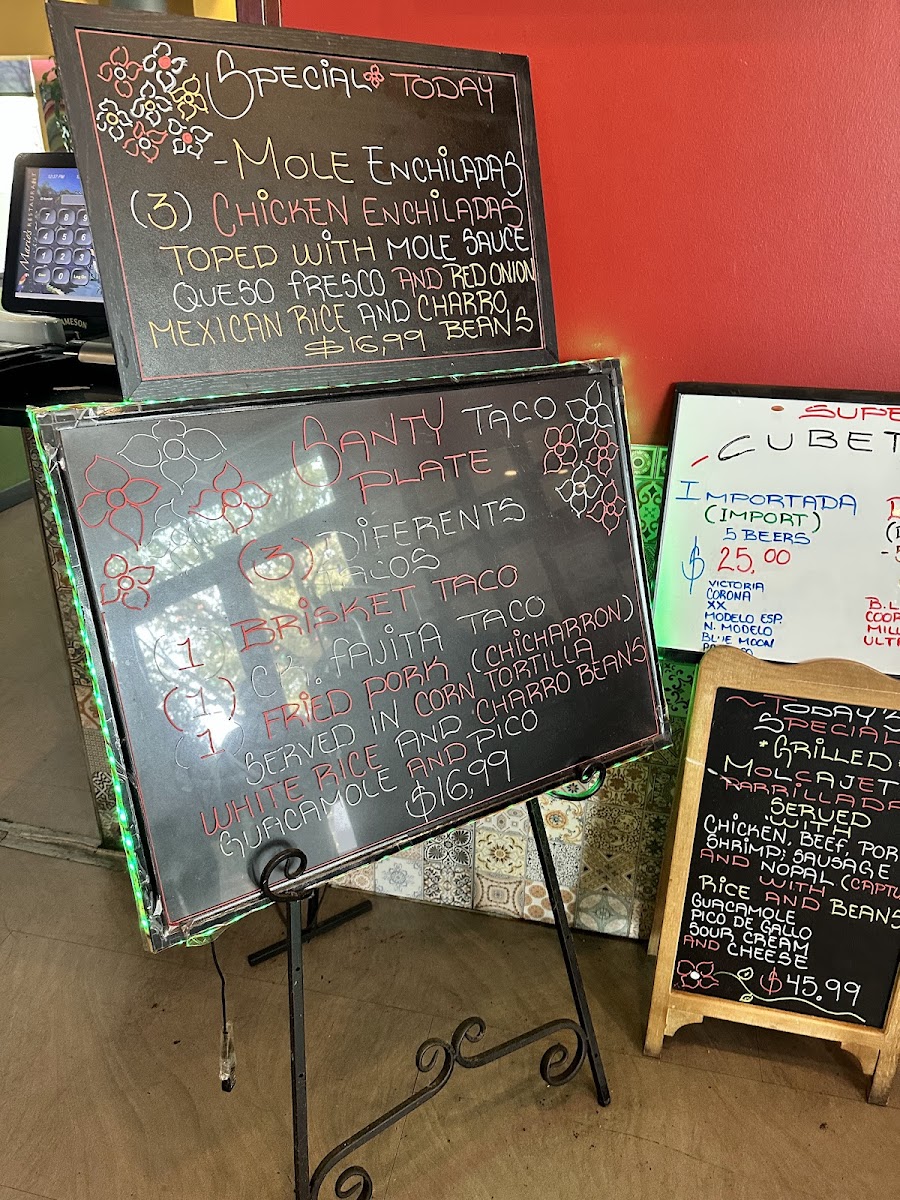 Special Today
- Mole Enchiladas
(3) Chicken Enchiladas
Toped with Mole Sauce
Queso Fresco and Red Onion
Mexican Rice and Charro
Beans
$16,99
Santy Taco
Plate
(3) Diferents
Tacos
(1 Brisket Taco
(1) CK. Fajita Taco
(1) Fried Pork (Chicharron)
Served in Corn Tortilla
White Rice and Charro Beans
Guacamole and Pico
$16,99
Importada
(Import)
5 Beers
$25,00
Victoria
Corona
XX
Modelo Esp.
N. Modelo
Blue Moon
B.L
~Today's
Special
*Grilled
Molcajet
Parrillada
Served
with
Chicken, Beef, Por
Shrimp; Sausage
and Nopal (Captu
with
Rice and Beans
Guacamole
Pico de Gallo
Sour Cream
and Cheese
$45.99
Maria's
RESTAURANT
7 8 9
4 5 6
1 2 3
0
JAMESON